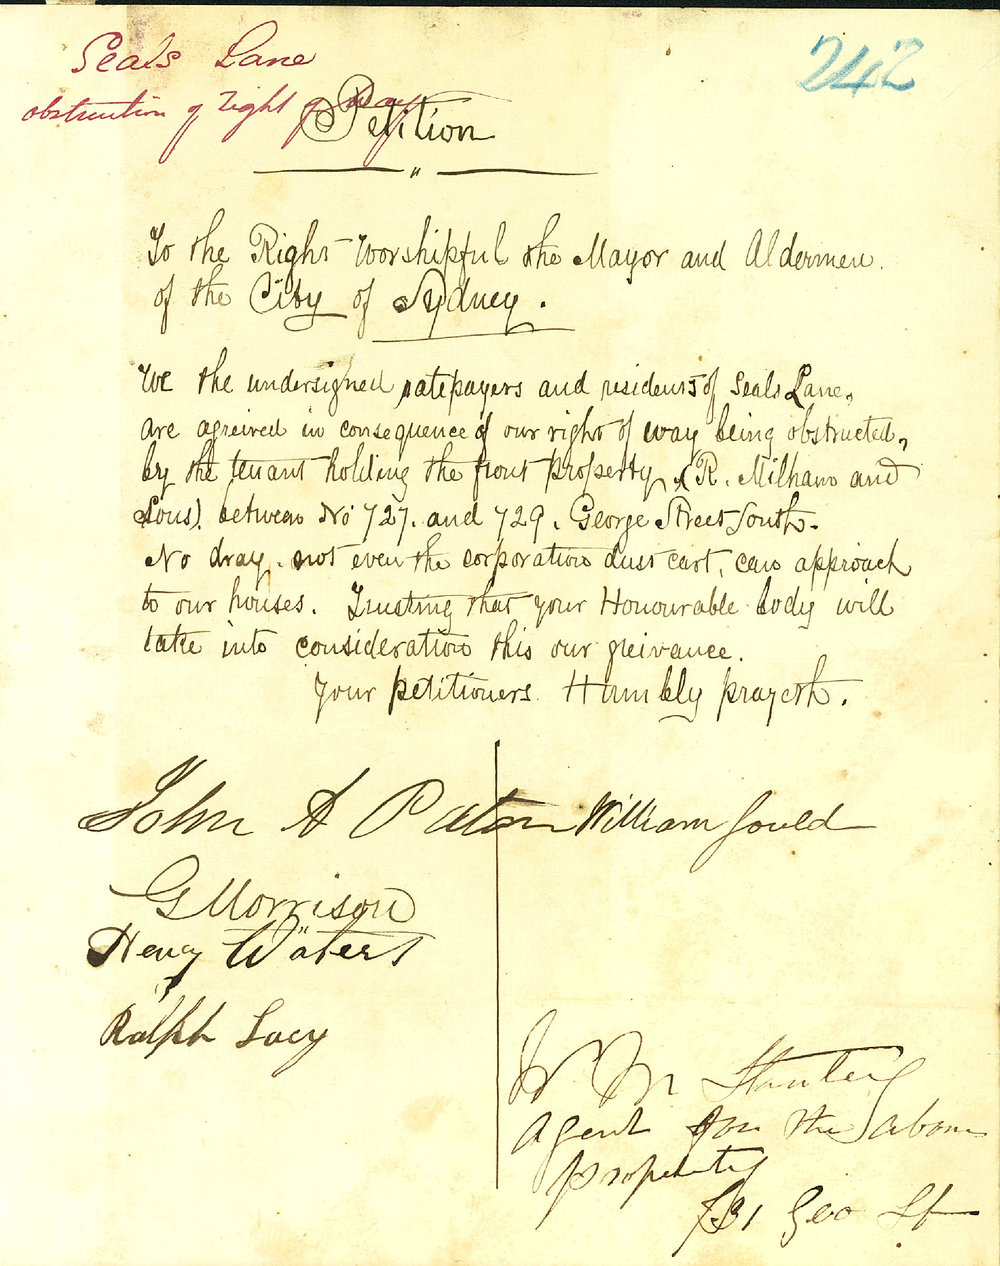 Seals Lane
obstruction of right of Way
242
Petition
"
To the Right Worshipful the Mayor and Aldermen.
of the City of Sydney.
We the undersigned ratepayers and residents of Seals Lane,
are agreived in consequence of our right of way being obstructed,
by the tenant holding the front property, (R. Milham and
Sons). between No 727. and 729. George Street South.
No dray. not even the corporation dust cart, can approach
to our houses. Trusting that your Honourable body will
take into consideration this our greivance.
Your petitioners Humbly prayeth.
John A Paton
William Gould
G Morrison
Henry Waters
Ralph Lacy
W M Stanley
Agent for the above
property
731 Geo St